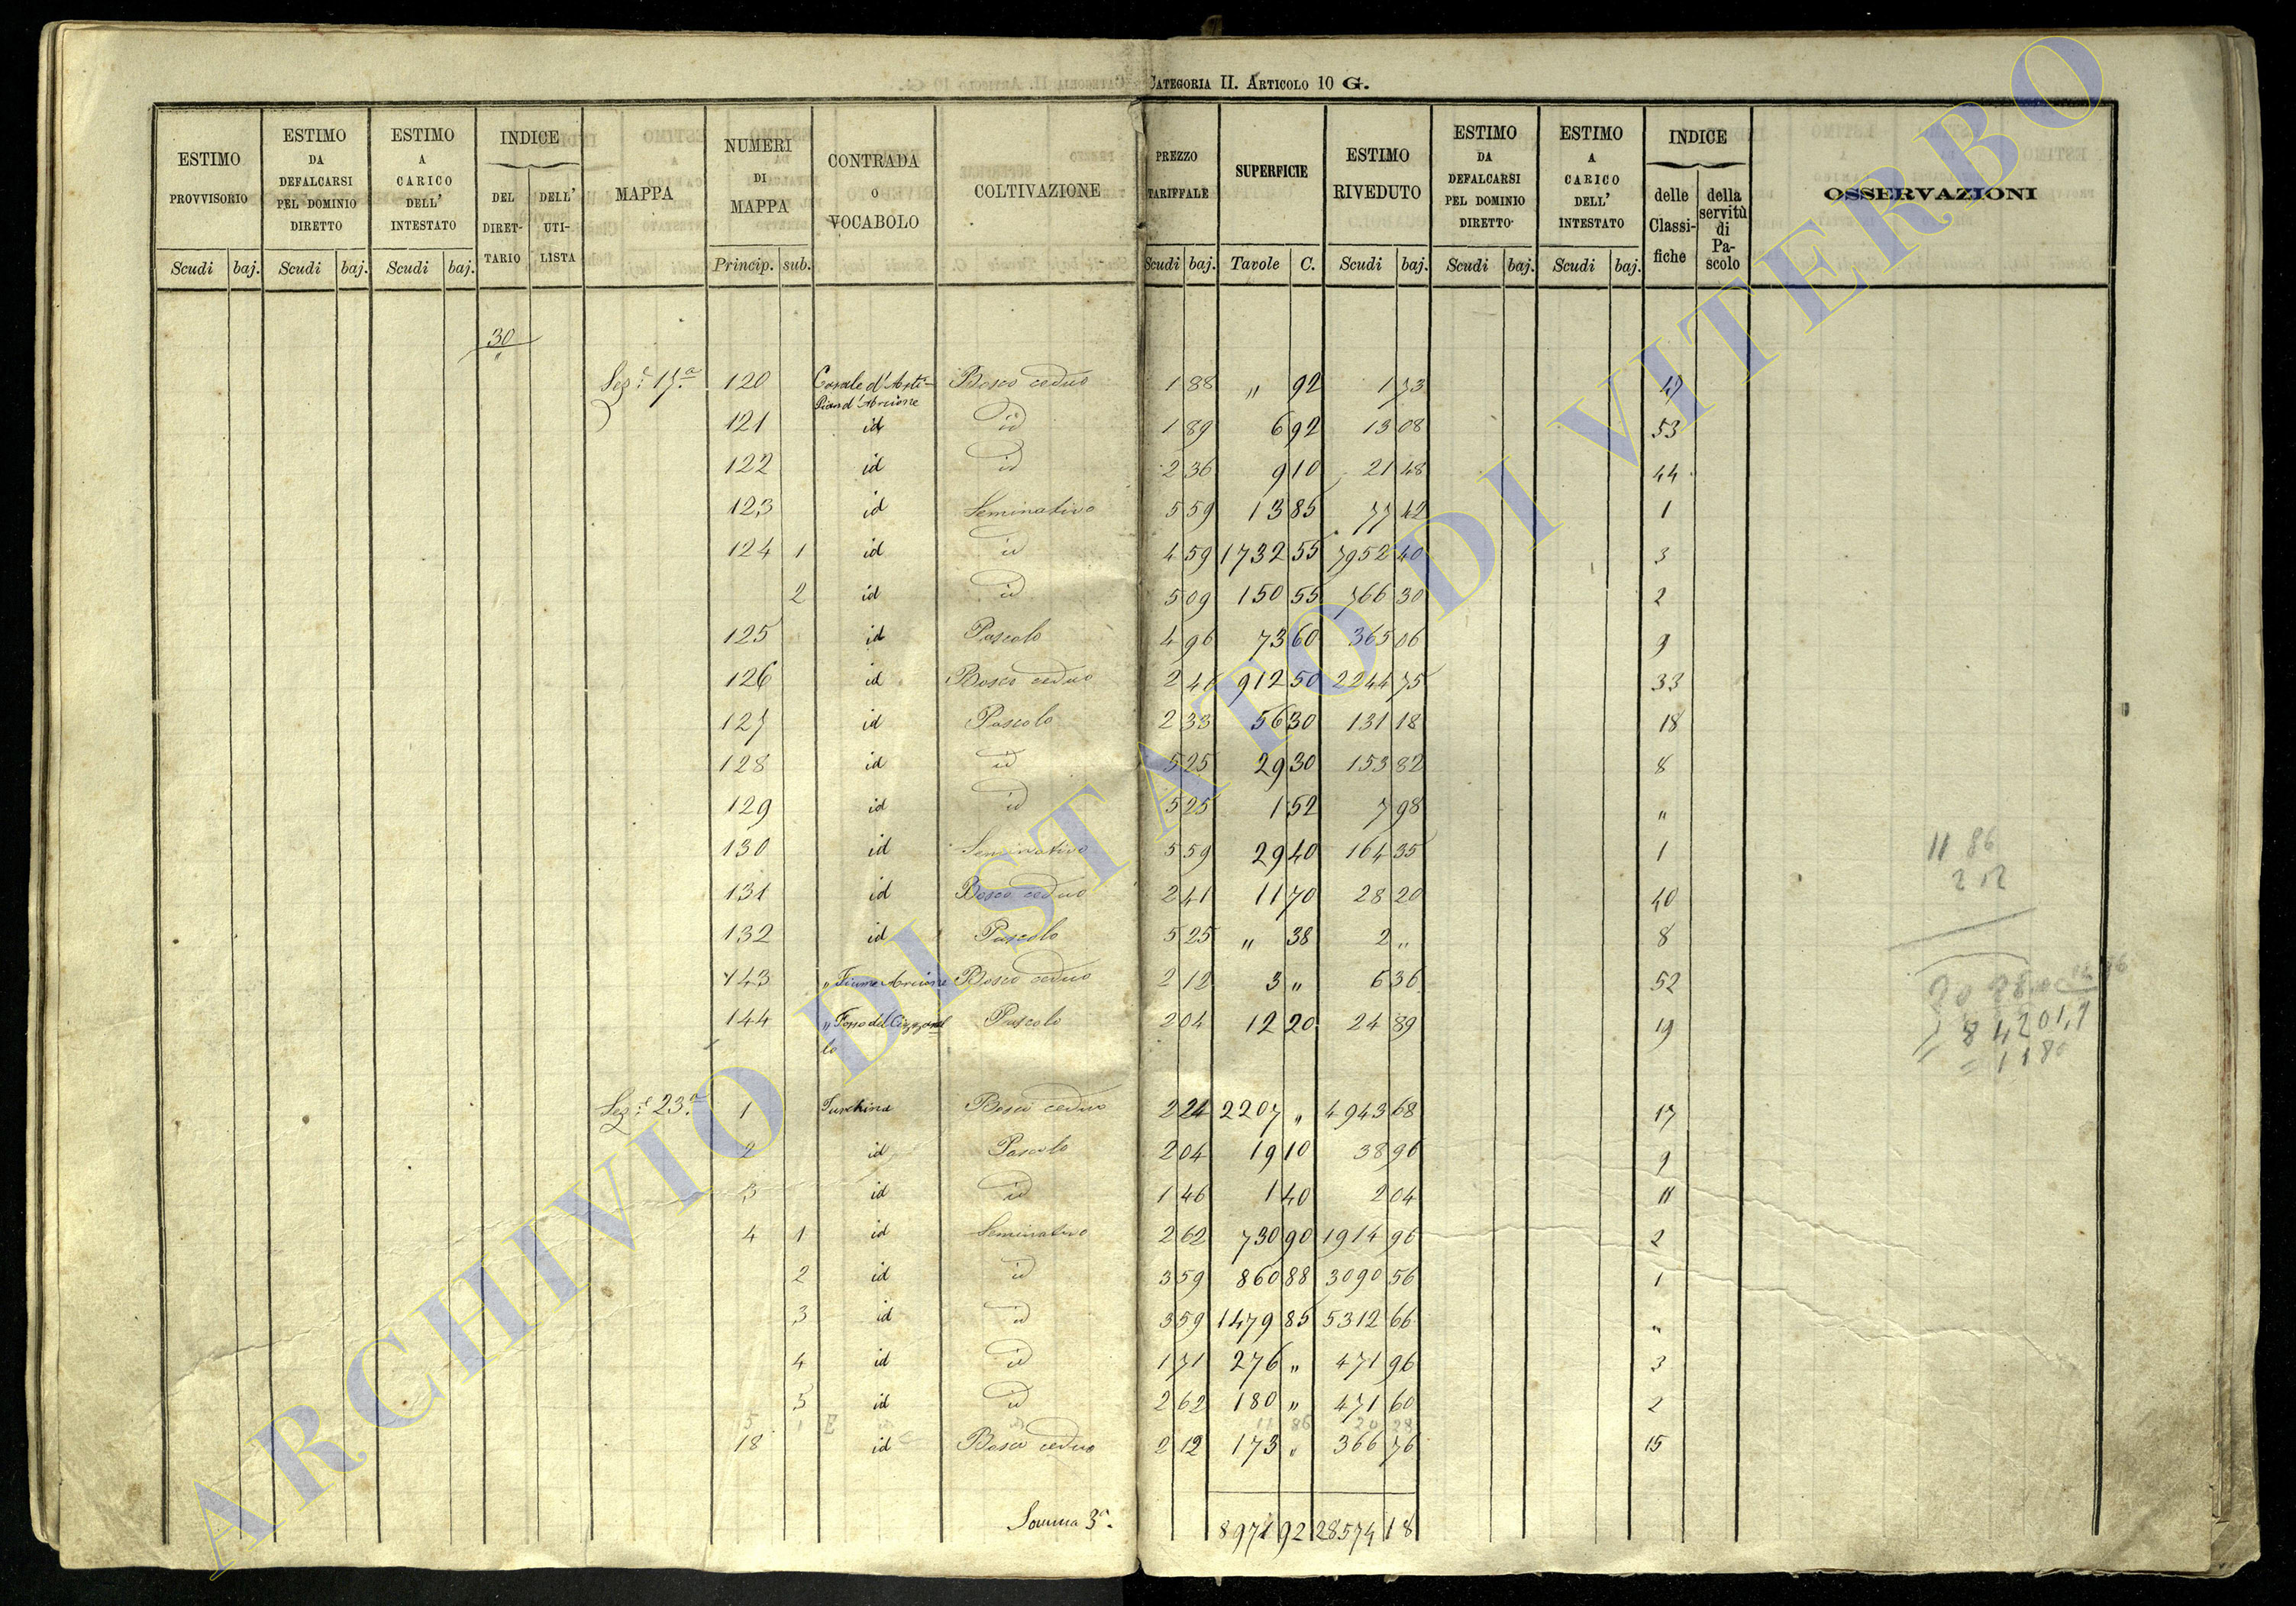 CATEGORIA II. ARTICOLO 10 G.
ESTIMO PROVVISORIO
ESTIMO DA DEFALCARSI PEL DOMINIO DIRETTO
ESTIMO A CARICO DELL' INTESTATO
INDICE
DEL DIRET-TARIO
DELL' UTI-LISTA
MAPPA
NUMERI DI MAPPA
CONTRADA O VOCABOLO
COLTIVAZIONE
PREZZO TARIFFALE
SUPERFICIE
ESTIMO RIVEDUTO
ESTIMO DA DEFALCARSI PEL DOMINIO DIRETTO
ESTIMO A CARICO DELL' INTESTATO
INDICE
delle Classi-fiche
della servitù di Pa-scolo
OSSERVAZIONI
Scudi baj. Scudi baj. Scudi baj. Princip. sub. Scudi baj. Tavole C. Scudi baj. Scudi baj. Scudi baj.
30
"
Sez.e 17.a 120 Bosco ceduo 1 88 " 92 1 73 47
Pian d'Arcione
121 id id 1 89 6 92 13 08 53
122 id id 2 36 9 10 21 48 44
123 id Seminativo 5 59 13 85 77 42 1
124 1 id id 4 59 1732 55 7952 40 3
2 id id 5 09 150 55 766 30 2
125 id Pascolo 4 96 73 60 365 06 9
126 id Bosco ceduo 2 46 912 50 2244 75 33
127 id Pascolo 2 33 56 30 131 18 18
128 id id 5 25 29 30 153 82 8
129 id id 5 25 1 52 7 98 "
130 id Seminativo 5 59 29 40 164 35 1
131 id Bosco ceduo 2 41 11 70 28 20 40
132 id Pascolo 5 25 " 38 2 " 8
143 " Fiume Arcione Bosco ceduo 2 12 3 " 6 36 52
144 " Fosso del Pascolo 2 04 12 20 24 89 19
lo
Sez.e 23.a 1 Turchina Bosco ceduo 2 24 2207 " 4943 68 17
2 id Pascolo 2 04 19 10 38 96 9
3 id id 1 46 1 40 2 04 11
4 1 id Seminativo 2 62 730 90 1914 96 2
2 id id 3 59 860 88 3090 56 1
3 id id 3 59 1479 85 5312 66 "
4 id id 1 71 276 " 471 96 3
5 id id 2 62 180 " 471 60 2
5 1 E id id 11 86 20 28
18 id Bosco ceduo 2 12 173 " 366 76 15
Somma 3a. 8971 92 28574 18
11 86
2 12
1180
ARCHIVIO DI STATO DI VITERBO